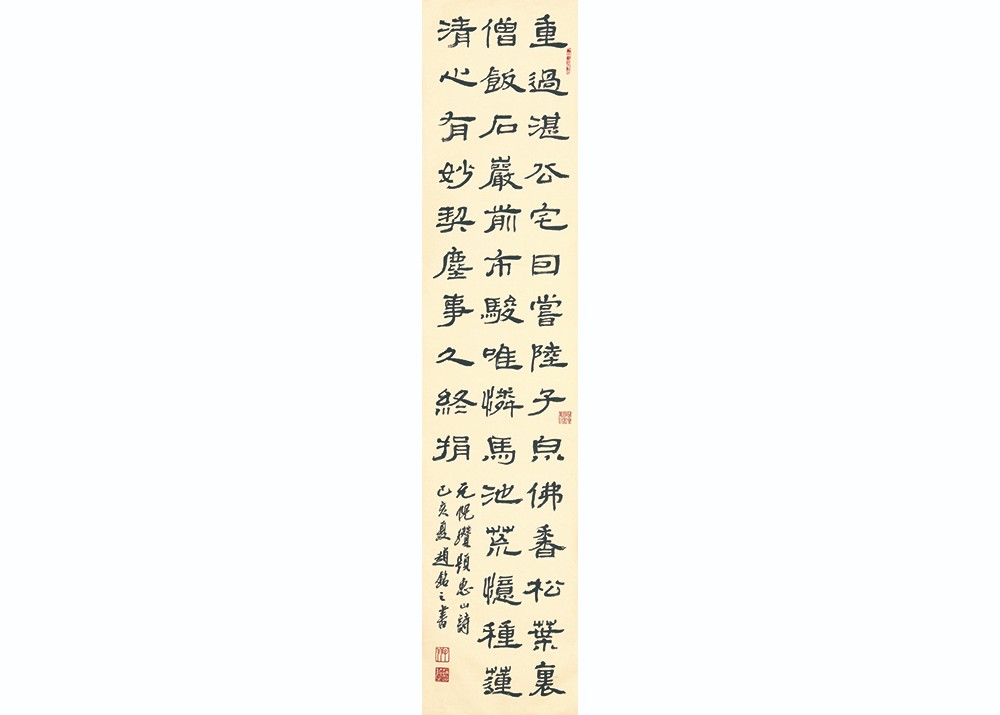 重過湛公宅回嘗陸子泉佛香松葉裏
僧飯石巖前市駿唯憐馬池荒憶種蓮
清心有妙契塵事久終捐
元倪瓚題惠山詩
己亥夏趙銘之書